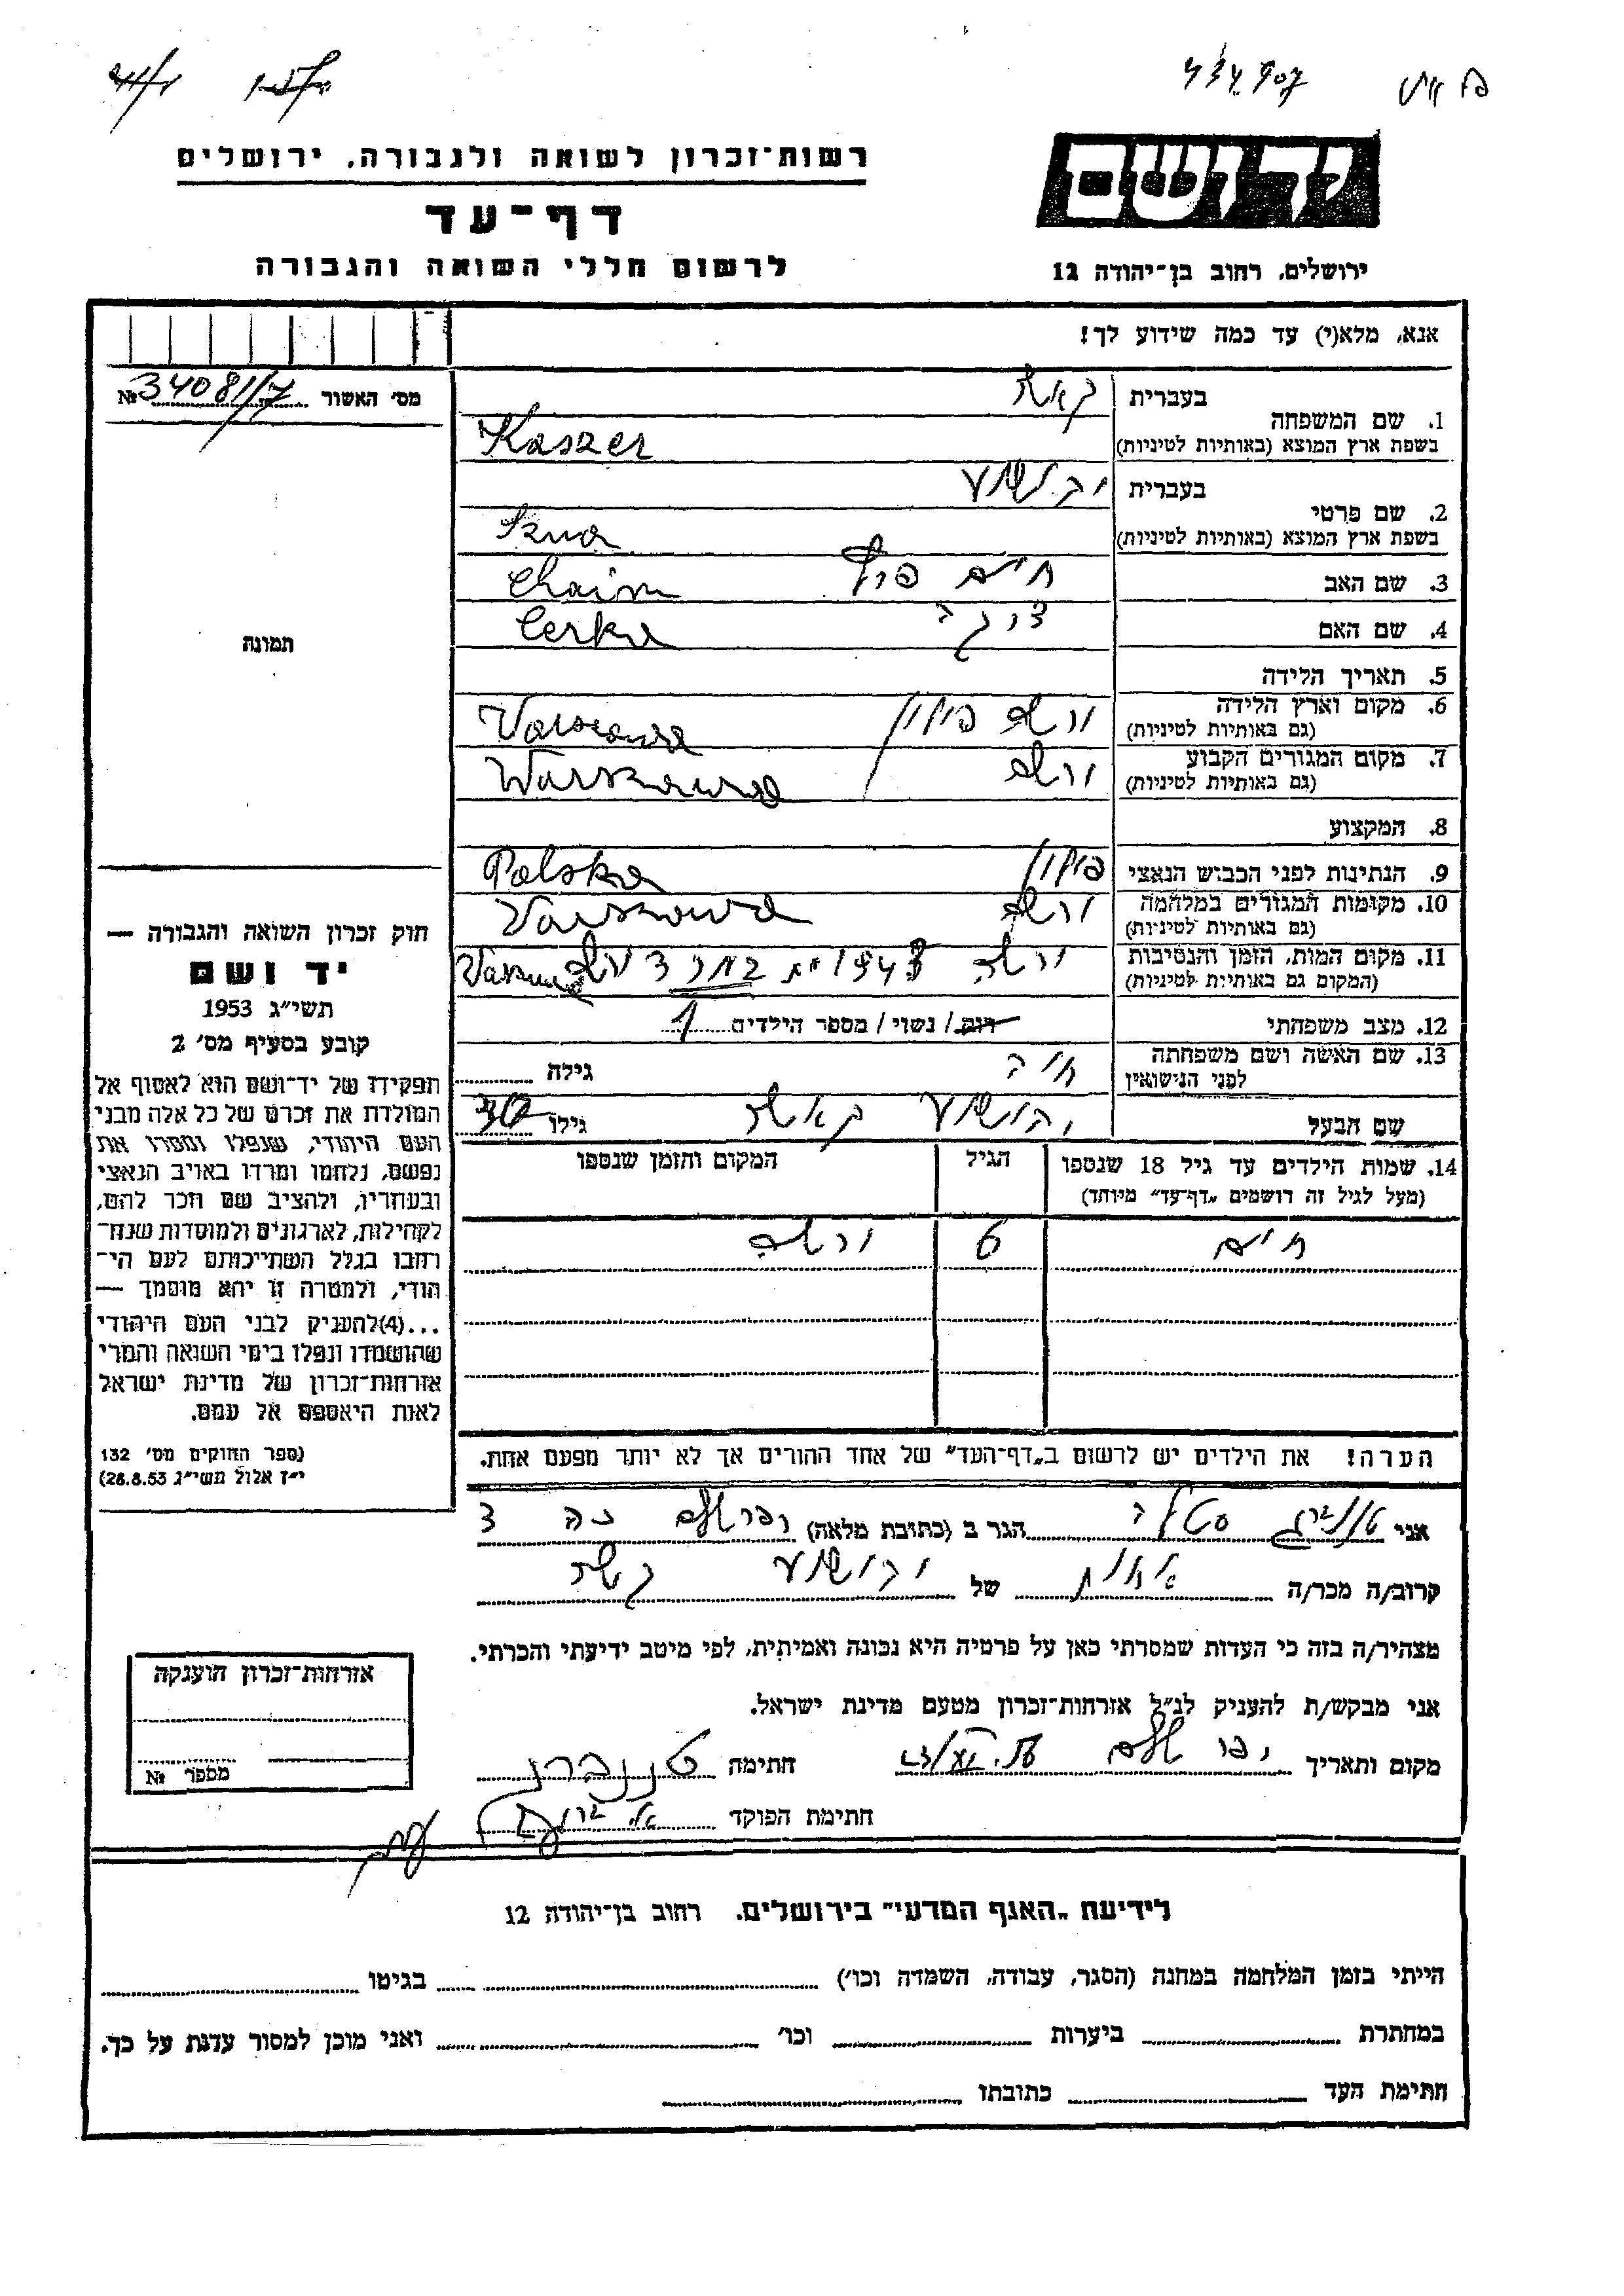 רשות־זכרון לשואה ולגבורה, ירושלים
יד ושם
דף־עד
לרשום חללי השואה והגבורה
ירושלים, רחוב בן־יהודה 12
אנא, מלא(י) עד כמה שידוע לך!
מס׳ האשור № 34081/7
1. שם המשפחה
בעברית קאשר
בשפת ארץ המוצא (באותיות לטיניות) Kaszer
2. שם פרטי
בעברית יהושע
בשפת ארץ המוצא (באותיות לטיניות)
3. שם האב חיים Chaim
4. שם האם Cerka
5. תאריך הלידה
6. מקום וארץ הלידה ורשה פולין
(גם באותיות לטיניות)
7. מקום המגורים הקבוע ורשה Warszawa
(גם באותיות לטיניות)
8. המקצוע
9. הנתינות לפני הכבוש הנאצי פולין Polska
10. מקומות המגורים במלחמה ורשה
(גם באותיות לטיניות)
11. מקום המות, הזמן והנסיבות ורשה 1943
(המקום גם באותיות לטיניות)
12. מצב משפחתי רוק / נשוי / מספר הילדים 1
13. שם האשה ושם משפחתה חיה גילה
לפני הנישואין
שם הבעל יהושע קאשר גילו
14. שמות הילדים עד גיל 18 שנספו הגיל המקום והזמן שנספו
(מעל לגיל זה רושמים „דף־עד״ מיוחד)
חיים 6 ורשה
הערה! את הילדים יש לרשום ב„דף־העד״ של אחד ההורים אך לא יותר מפעם אחת.
תמונה
חוק זכרון השואה והגבורה —
יד ושם
תשי״ג 1953
קובע בסעיף מס׳ 2
תפקידו של יד־ושם הוא לאסוף אל
המולדת את זכרם של כל אלה מבני
העם היהודי, שנפלו ומסרו את
נפשם, נלחמו ומרדו באויב הנאצי
ובעוזריו, ולהציב שם וזכר להם,
לקהילות, לארגונים ולמוסדות שנח־
רבו בגלל השתייכותם לעם הי־
הודי, ולמטרה זו יהא מוסמך —
...(4)להעניק לבני העם היהודי
שהושמדו ונפלו בימי השואה והמרי
אזרחות־זכרון של מדינת ישראל
לאות היאספם אל עמם.
(ספר החוקים מס׳ 132
י״ז אלול תשי״ג 28.8.53)
אני הגר ב (כתובת מלאה)
קרוב/ה מכר/ה אחות של יהושע קשר
מצהיר/ה בזה כי העדות שמסרתי כאן על פרטיה היא נכונה ואמיתית, לפי מיטב ידיעתי והכרתי.
אני מבקש/ת להעניק לנ״ל אזרחות־זכרון מטעם מדינת ישראל.
מקום ותאריך חתימה טננברג
חתימת הפוקד
אזרחות־זכרון הוענקה
מספר №
לידיעת „האגף המדעי״ בירושלים. רחוב בן־יהודה 12
הייתי בזמן המלחמה במחנה (הסגר, עבודה, השמדה וכו׳) בגיטו
במחתרת ביערות וכו׳ ואני מוכן למסור עדות על כך.
חתימת העד כתובתו